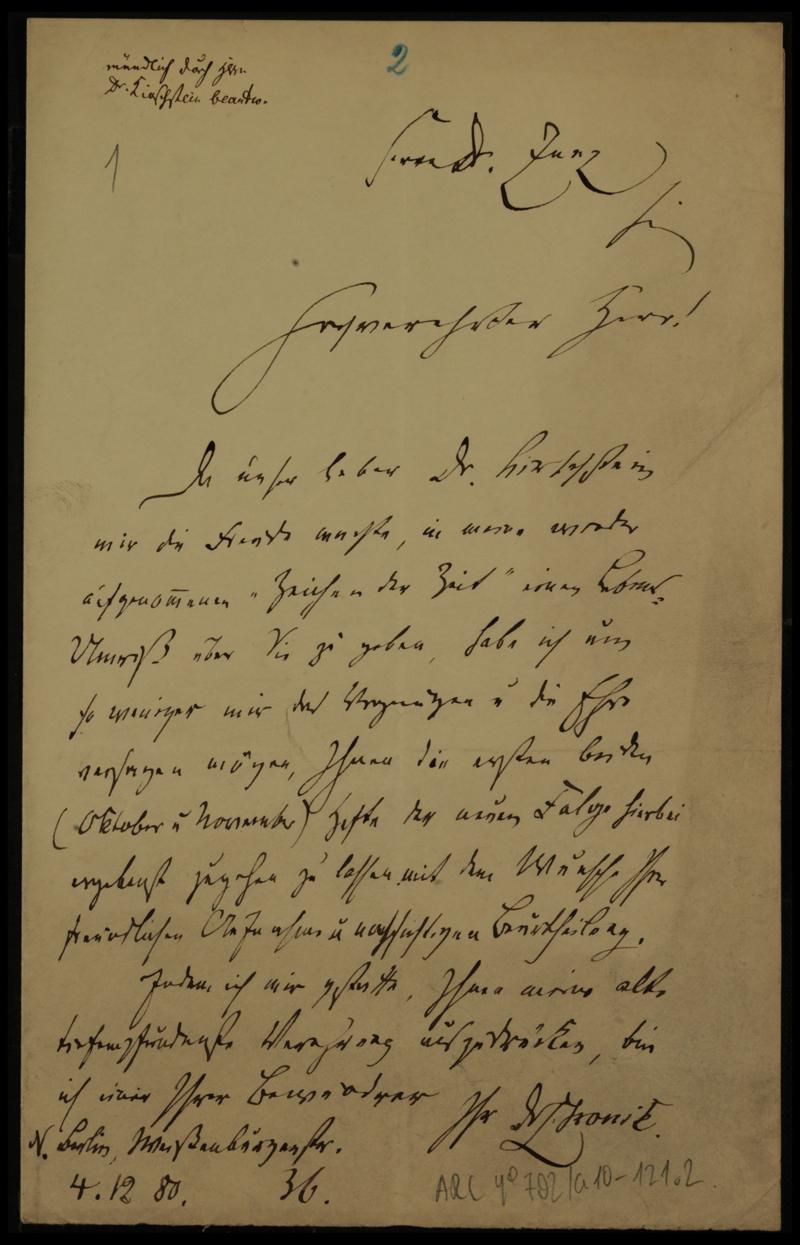 mündlich durch Hrn.
Dr. Kirschstein beantw.
2
1
Herrn Dr. Zunz
hier
Hochverehrter Herr!
Da unser lieber Dr. Kirschstein
mir die Freude machte, in meine wieder
aufgenommenen "Zeichen der Zeit" einen Lebens-
Umriß über Sie zu geben, habe ich um
so weniger mir das Vergnügen u die Ehre
versagen mögen, Ihnen die ersten beiden
(Oktober u November) Hefte der neuen Folge hierbei
ergebenst zugehen zu lassen mit dem Wunsche Ihrer
freundlichen Aufnahme u nachsichtigen Beurtheilung.
Indem ich mir gestatte, Ihnen meine alte
tiefempfundenste Verehrung auszudrücken, bin
ich immer Ihrer Bewunderer
Ihr Dr.
N. Berlin, Weißenburgerstr.
4. 12 80. 36.
ARC 4° 792/a10-121.2